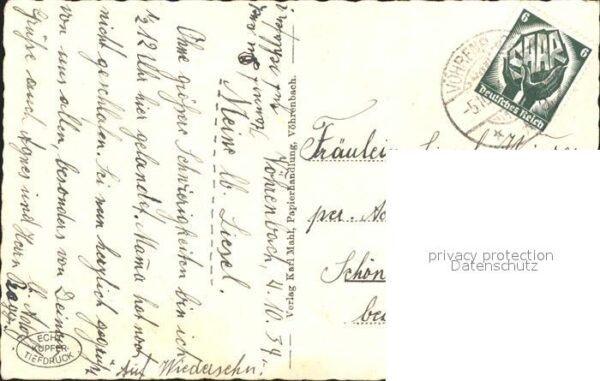 Vöhrenbach, 4.10.34.
Meine lb. Liesel.
Ohne größere Schwierigkeiten bin ich
1/2 12 Uhr hier gelandet. Mama hat noch
nicht geschlafen. Sei nun herzlich gegrüßt
von uns allen, besonders von Deiner
Grüße auch Agnes und Herrn
Auf Wiedersehn!
ECHT
KUPFER-
TIEFDRUCK
Verlag Karl Mahl, Papierhandlung, Vöhrenbach.
VÖHRENB
6 SAAR 6
Deutsches Reich
Fräulein
per.
Schön
be
privacy protection
Datenschutz